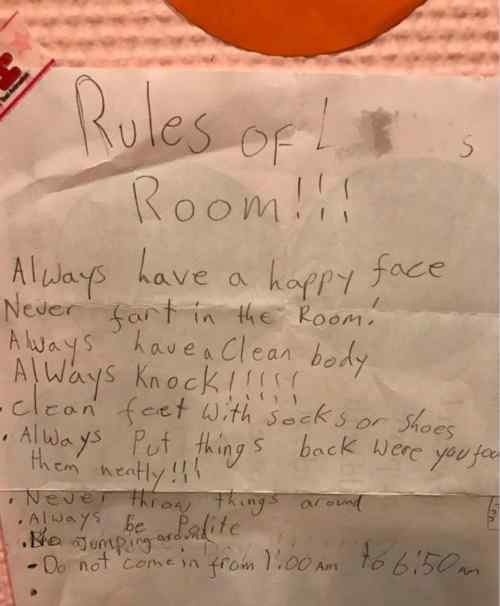 Rules of L s
Room!!!
Always have a happy face
Never fart in the Room!
Always have a Clean body
AlWays Knock!!!!!
• Clean feet With socks or shoes
• Always Put things back Were you fou
them neatly!!!
• Never throw things around
• Always be Polite
• No Jumping around
- Do not come in from 1:00 Am to 6:50 am
•